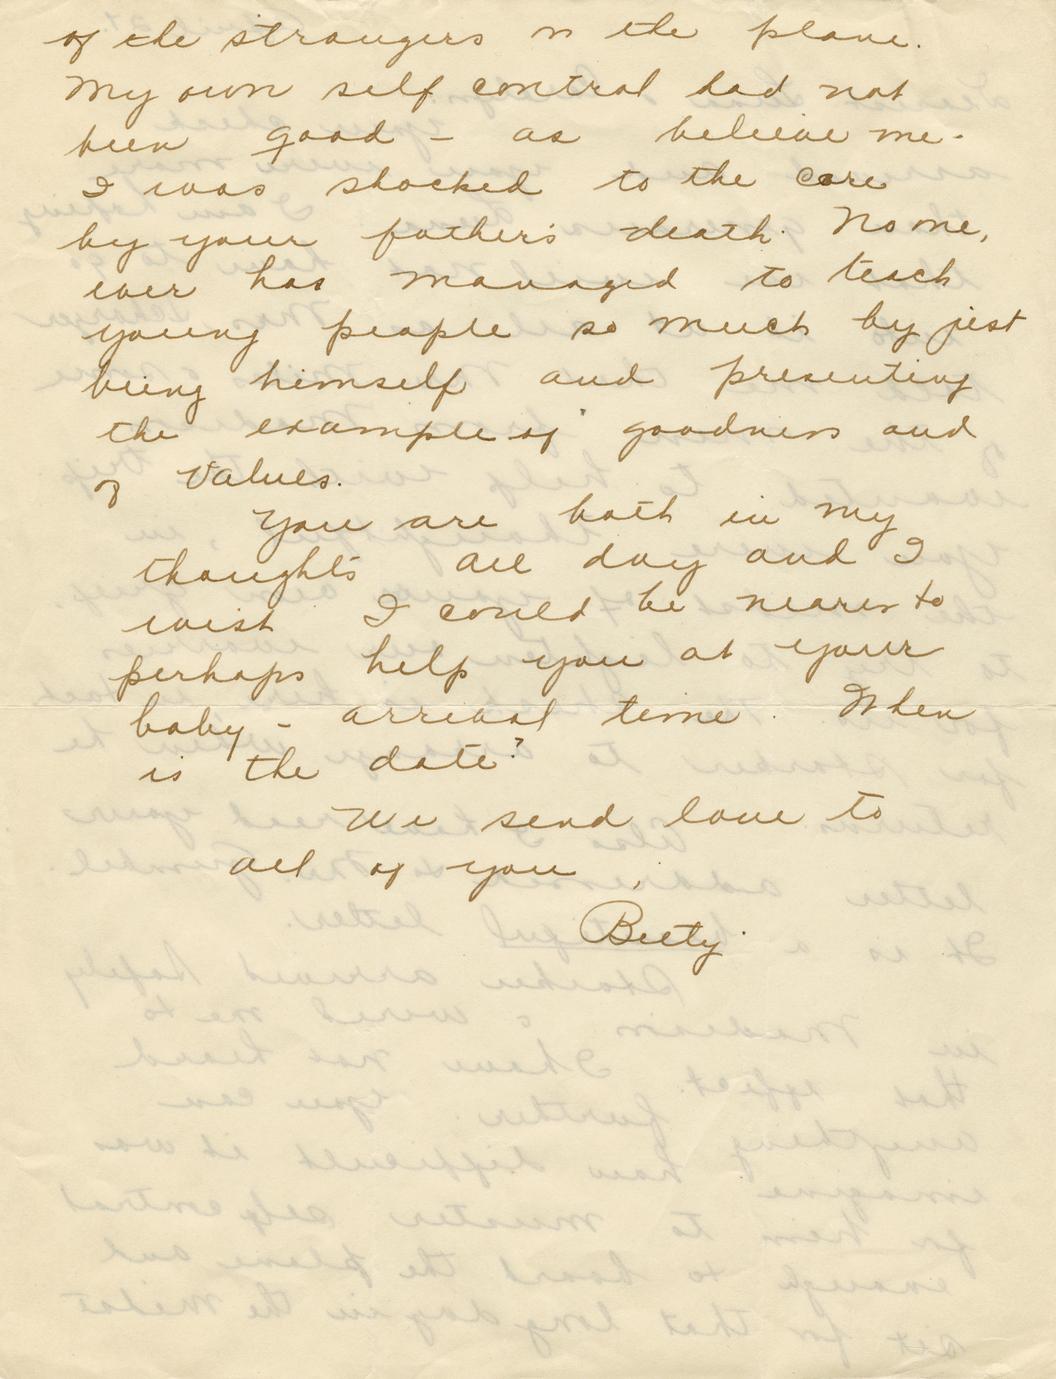 of the strangers in the plane.
My own self control had not
been good - as believe me -
I was shocked to the core
by your father's death. No one,
ever has managed to teach
young people so much by just
being himself and presenting
the example of goodness and
of values.
You are both in my
thoughts all day and I
wish I could be nearer to
perhaps help you at your
baby - arrival time. When
is the date?
We send love to
all of you,
Betty.